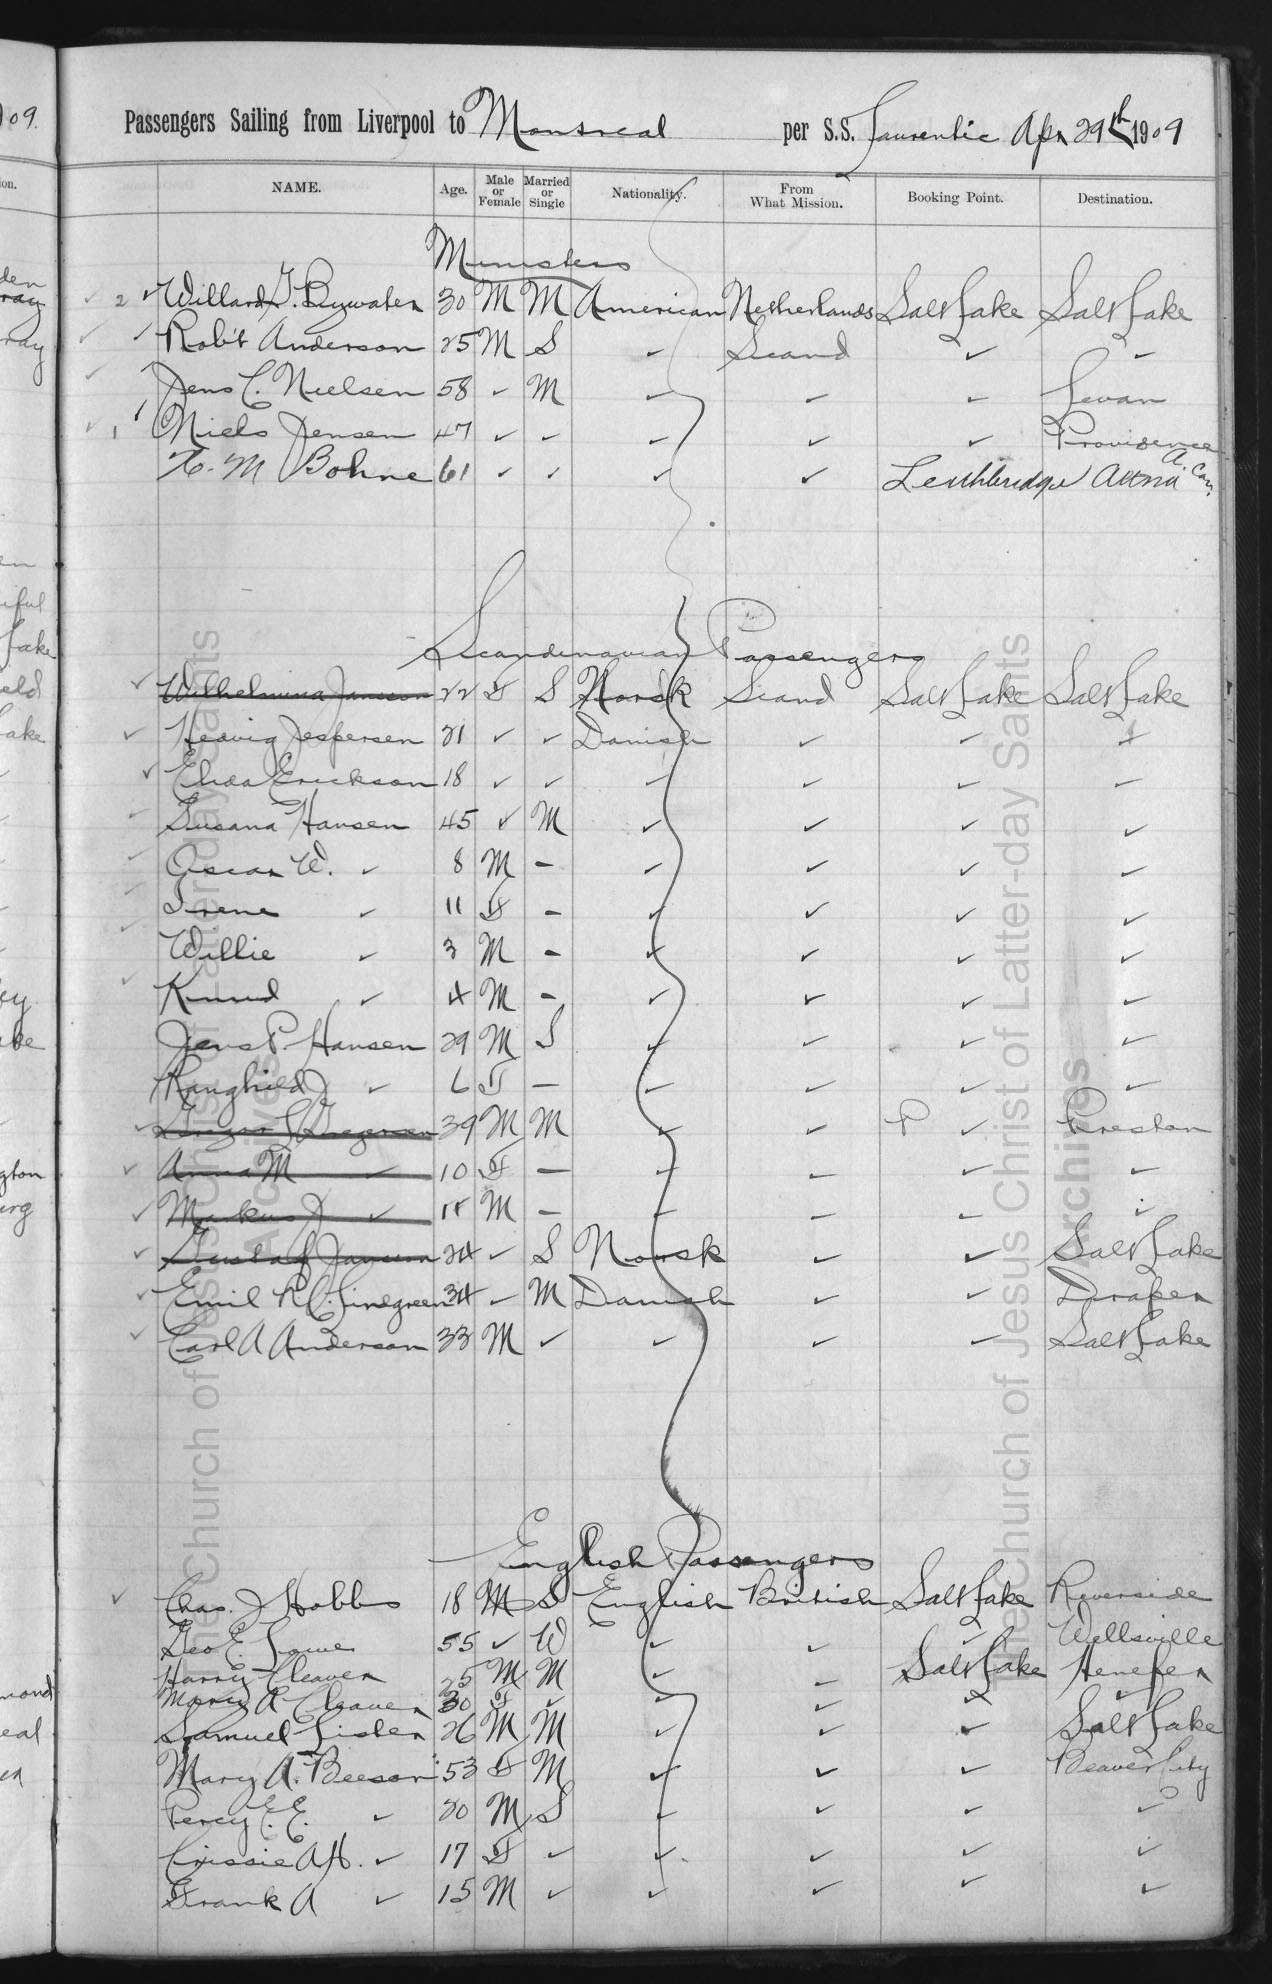 Passengers Sailing from Liverpool to Montreal per S.S. Laurentic Apr 29th 1909
NAME. Age. Male or Female Married or Single Nationality. From What Mission. Booking Point. Destination.
Ministers
2 Willard T. Bywater 30 M M American Netherlands Salt Lake Salt Lake
Robt Anderson 25 M S ✓ Scand ✓ ✓
Jens C. Nielsen 58 ✓ M ✓ ✓ ✓ Levan
1 Niels Jensen 47 ✓ ✓ ✓ ✓ ✓ Providence
M Bohne 61 ✓ ✓ ✓ ✓ Leithbridge A. Can.
Scandinavian Passengers
Wilhelmina Jansson 22 F S Norsk Scand Salt Lake Salt Lake
Hedvig Jespersen 21 ✓ ✓ Danish ✓ ✓ ✓
Elida Erickson 18 ✓ ✓ ✓ ✓ ✓ ✓
Susana Hansen 45 ✓ M ✓ ✓ ✓ ✓
Oscar W. ✓ 8 M - ✓ ✓ ✓ ✓
Irene ✓ 11 F - ✓ ✓ ✓ ✓
Willie ✓ 3 M - ✓ ✓ ✓ ✓
Knud ✓ 4 M - ✓ ✓ ✓ ✓
Jens P. Hansen 29 M S ✓ ✓ ✓ ✓
Ranghild J ✓ 6 F - ✓ ✓ ✓ ✓
39 M M ✓ ✓ P ✓ Preston
Anna M ✓ 10 F - ✓ ✓ ✓ ✓
Markus J ✓ M - ✓ ✓ ✓ ✓
Gustaf Jansson 24 ✓ S Norsk ✓ ✓ Salt Lake
Emil R. C. Linegreen 34 ✓ M Danish ✓ ✓ Draper
Carl A Anderson 33 M ✓ ✓ ✓ ✓ Salt Lake
English Passengers
Chas. J Hobbs 18 M S English British Salt Lake Riverside
Geo E. Lowe 55 ✓ W ✓ ✓ ✓ Wellsville
Harry Cleaver 25 M M ✓ ✓ Salt Lake Henefer
Mary A Cleaver 30 F ✓ ✓ ✓ ✓ ✓
Samuel Lister 26 M M ✓ ✓ ✓ Salt Lake
Mary A. Beeson 53 F M ✓ ✓ ✓ Beaver City
Percy E. E. ✓ 20 M S ✓ ✓ ✓ ✓
Crissie A H. ✓ 17 F ✓ ✓ ✓ ✓ ✓
Frank A ✓ 15 M ✓ ✓ ✓ ✓ ✓
The Church of Jesus Christ of Latter-day Saints
Archives
The Church of Jesus Christ of Latter-day Saints
Archives